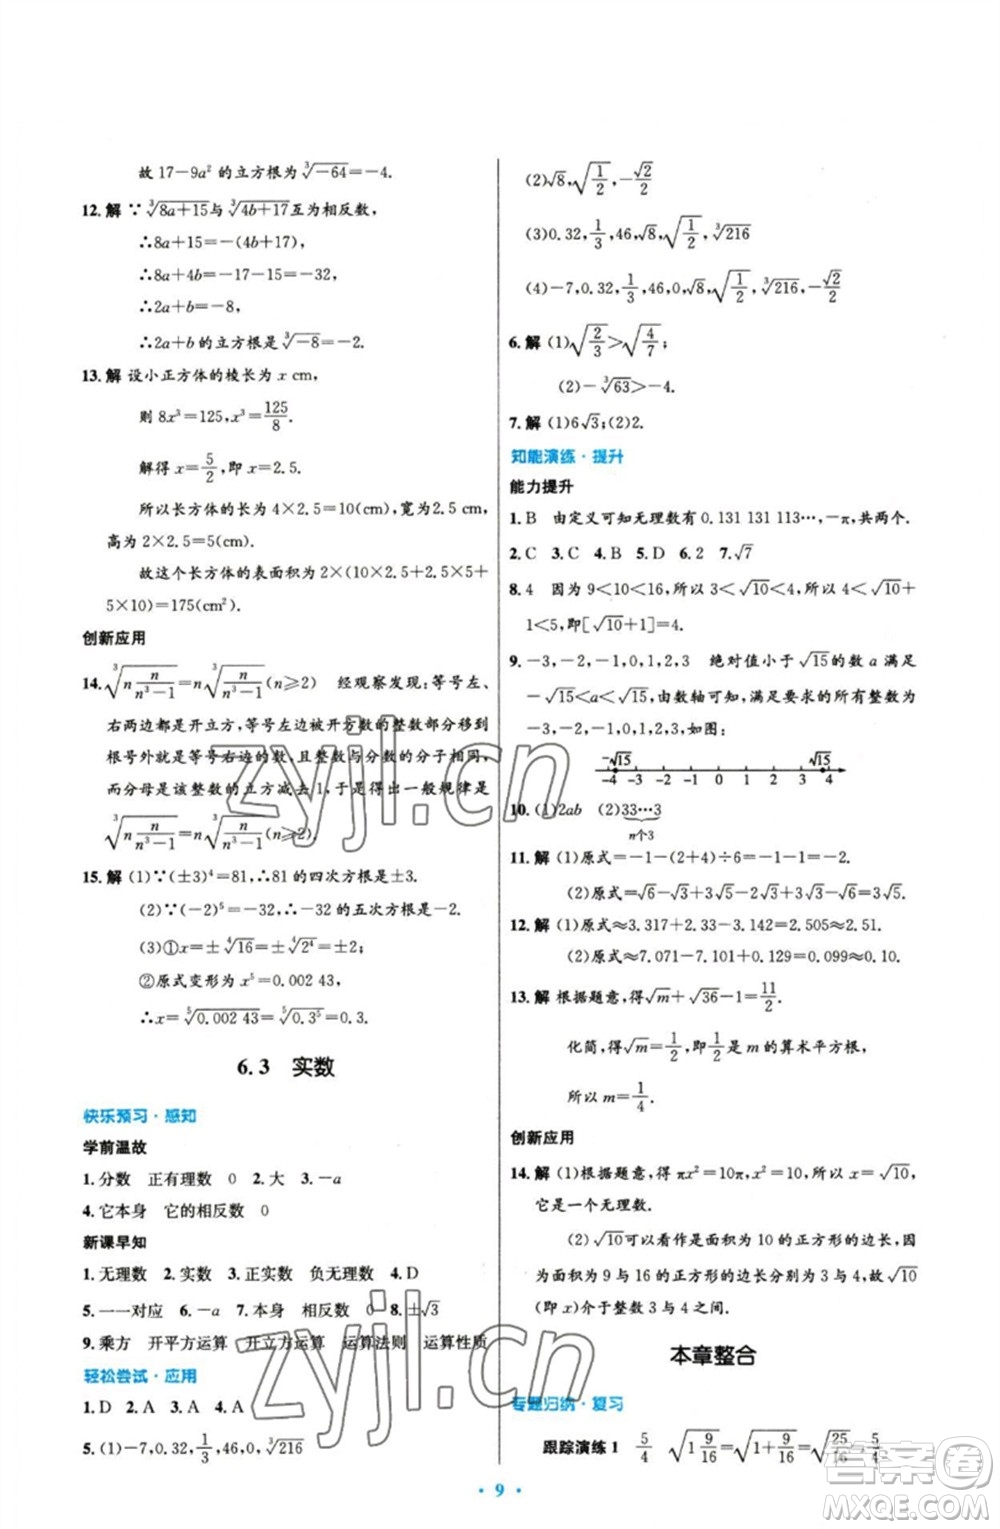 故 17-9a² 的立方根为 ∛-64=-4.
12. 解 ∵∛8a+15与∛4b+17互为相反数,
∴8a+15=-(4b+17),
∴8a+4b=-17-15=-32,
∴2a+b=-8,
∴2a+b 的立方根是∛-8=-2.
13. 解 设小正方体的棱长为 x cm,
则 8x³=125, x³=125/8.
解得 x=5/2, 即 x=2.5.
所以长方体的长为 4×2.5=10(cm), 宽为2.5cm,
高为 2×2.5=5(cm).
故这个长方体的表面积为 2×(10×2.5+2.5×5+
5×10)=175(cm²).
创新应用
14. ∛(n n/(n³-1))=n∛(n/(n³-1))(n≥2) 经观察发现:等号左、
右两边都是开立方,等号左边被开方数的整数部分移到
根号外就是等号右边的数,且整数与分数的分子相同,
而分母是该整数的立方减去1,于是得出一般规律是
∛(n n/(n³-1))=n∛(n/(n³-1))(n≥2).
15. 解 (1)∵(±3)⁴=81,∴81 的四次方根是±3.
(2)∵(-2)⁵=-32,∴-32 的五次方根是-2.
(3)①x=±∜16=±∜2⁴=±2.
②原式变形为 x⁵=0.002 43,
∴x=⁵√0.002 43=⁵√0.3⁵=0.3.
6.3 实数
快乐预习·感知
学前温故
1. 分数 正有理数 0 2. 大 3. -a
4. 它本身 它的相反数 0
新课早知
1. 无理数 2. 实数 3. 正实数 负无理数 4. D
5. 一一对应 6. -a 7. 本身 相反数 0 8. ±√3
9. 乘方 开平方运算 开立方运算 运算法则 运算性质
轻松尝试·应用
1. D 2. A 3. A 4. A
5. (1)-7,0.32,1/3,46,0,∛216
(2)√8,√(1/2),-√2/2
(3)0.32,1/3,46,√8,√(1/2),∛216
(4)-7,0.32,1/3,46,0,√8,√(1/2),∛216,-√2/2
6. 解 (1)√(2/3)>√(4/7);
(2)-∛63>-4.
7. 解 (1)6√3;(2)2.
知能演练·提升
能力提升
1. B 由定义可知无理数有 0.131 131 113…,-π,共两个.
2. C 3. C 4. B 5. D 6. 2 7. √7
8. 4 因为 9<10<16,所以 3<√10<4,所以 4<√10+
1<5,即[√10+1]=4.
9. -3,-2,-1,0,1,2,3 绝对值小于√15的数 a 满足
-√15<a<√15,由数轴可知,满足要求的所有整数为
-3,-2,-1,0,1,2,3,如图:
-√15 √15
-4 -3 -2 -1 0 1 2 3 4
10. (1)2ab (2)33…3
n个3
11. 解 (1)原式=-1-(2+4)÷6=-1-1=-2.
(2)原式=√6-√3+2√3-2√6+3√6=√3+2√6.
12. 解 (1)原式≈3.317+2.33-3.142=2.505≈2.51.
(2)原式≈7.071-7.1+0.129=0.100≈0.10.
13. 解 根据题意,得√m+√36-1=11/2.
化简,得√m=1/2,即1/2是 m 的算术平方根,
所以 m=1/4.
创新应用
14. 解 (1)根据题意,得 πx²=10π,x²=10,所以 x=√10,
它是一个无理数.
(2)√10可以看作是面积为 10 的正方形的边长,
因为面积为 9 与 16 的正方形的边长分别为3与4,故√10
(即 x)介于整数 3 与 4 之间.
本章整合
专题归纳·复习
跟踪演练 1 5/4 √(1 9/16)=√(1+9/16)=√(25/16)=5/4
·9·
zyjl.cn
zyjl.cn
答案圈
MXQE.COM